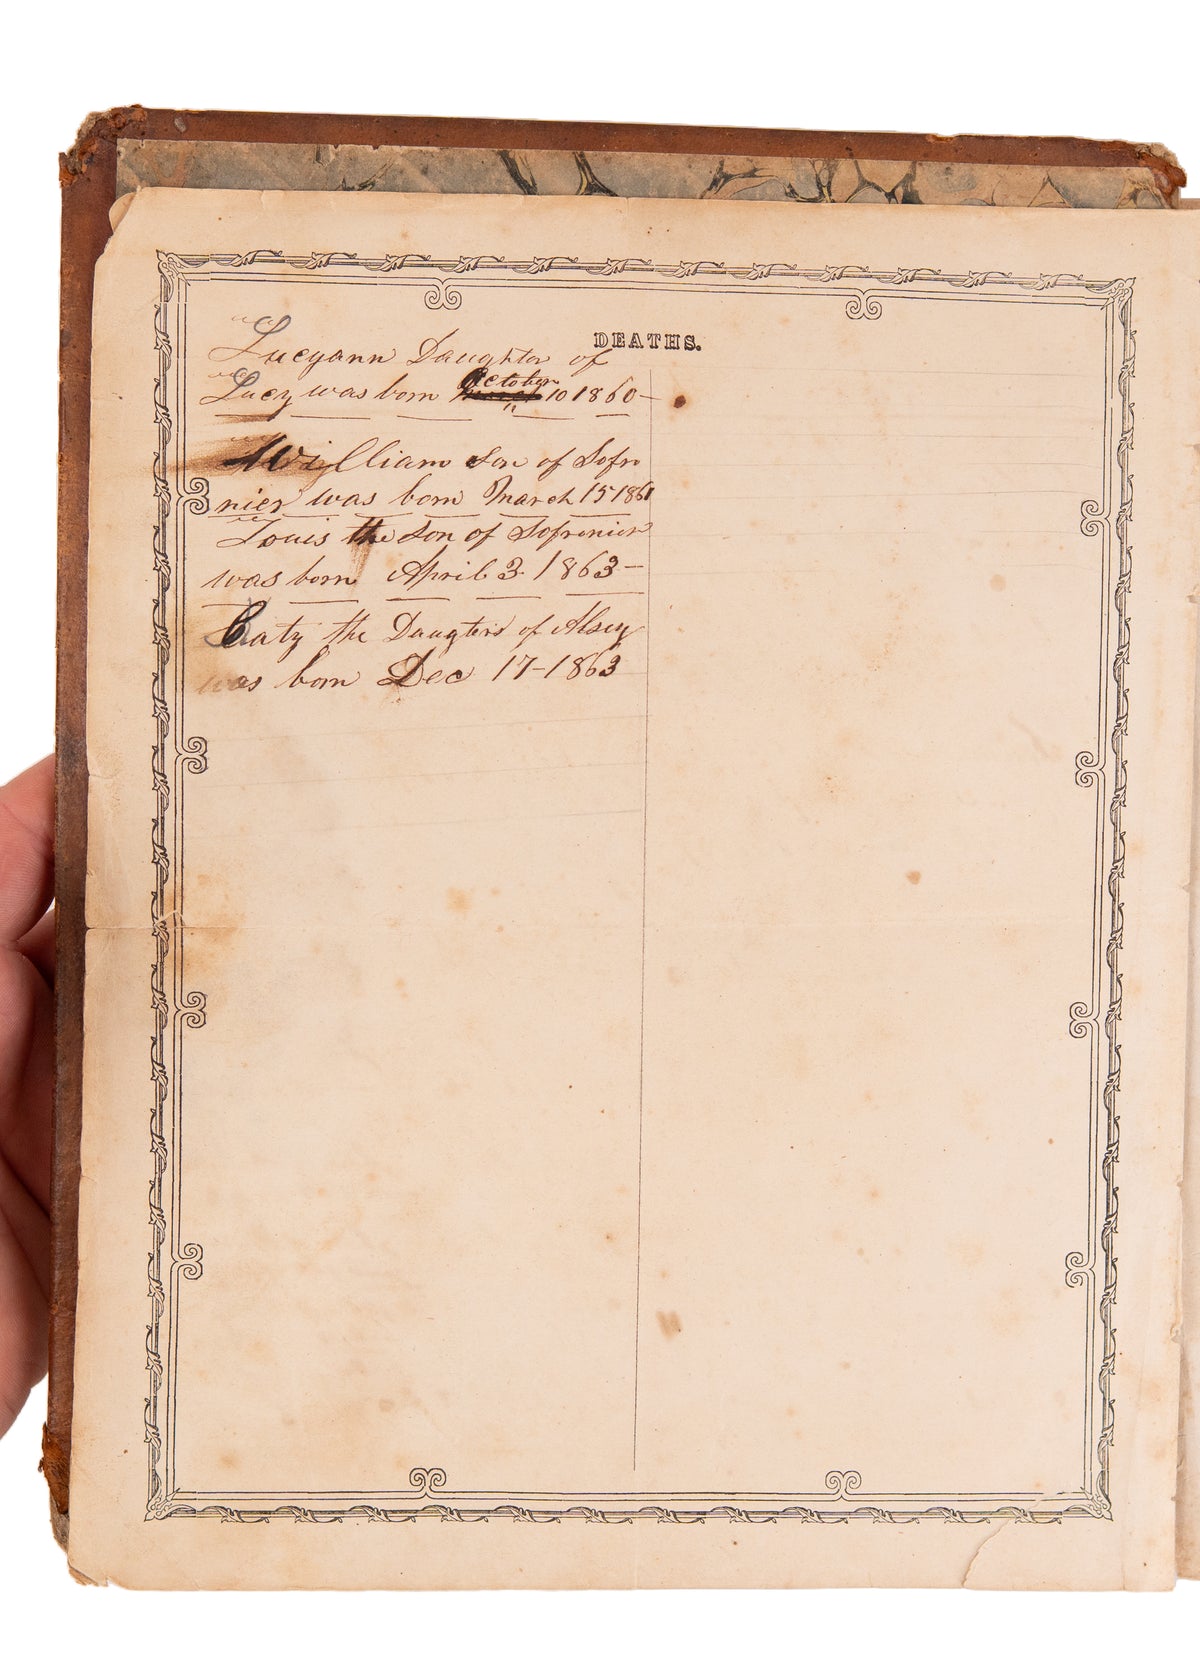 DEATHS.
Lucyann Daughter of
Lucy was born October 10 1860 –
William Son of Sofro
nier was born March 15 1861
Louis the Son of Sofronier
was born April 3 1863 –
Caty the Daugters of Alsey
was born Dec 17 – 1863